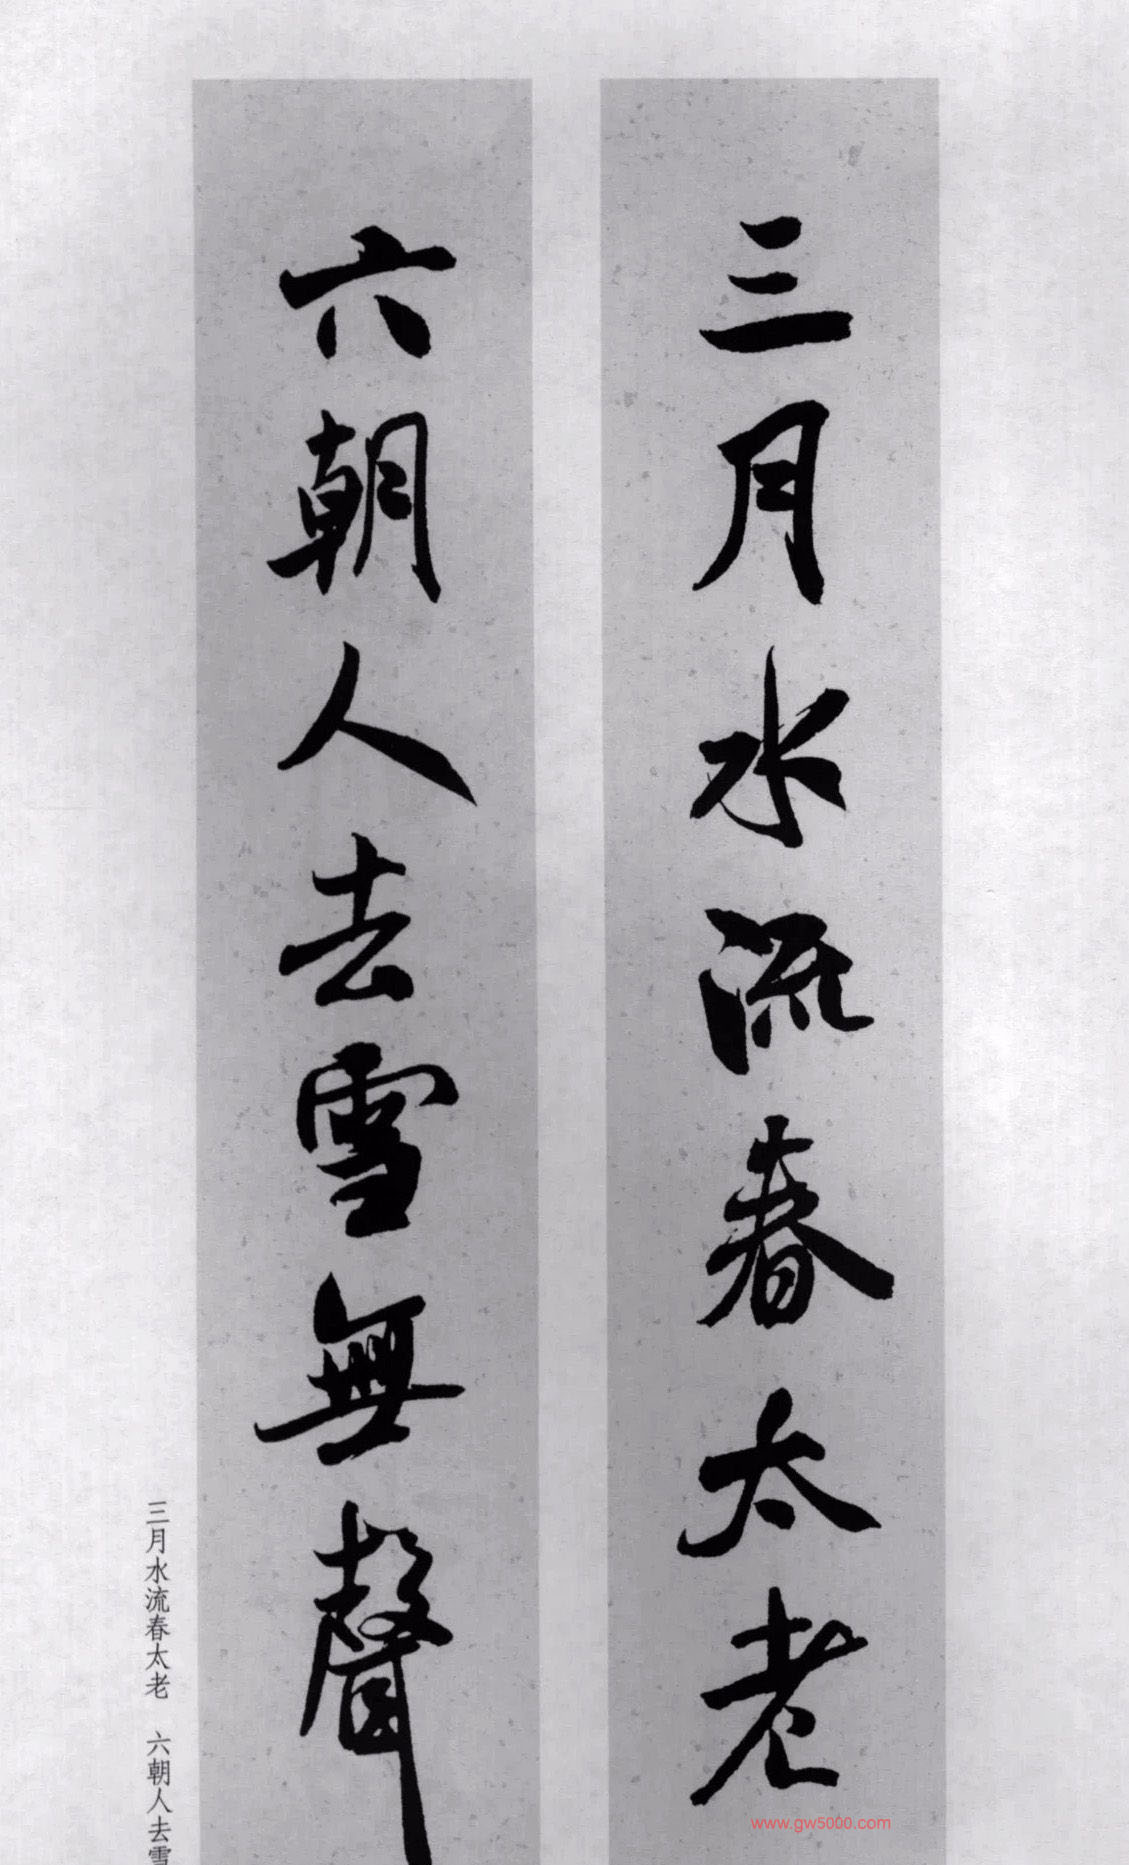 三月水流春太老
六朝人去雪無聲
三月水流春太老　六朝人去雪
www.gw5000.com